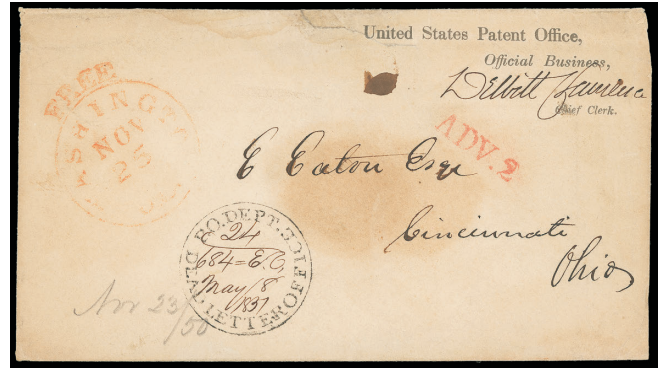 United States Patent Office,
Official Business,
DeWitt C Lawrence
Chief Clerk.
FREE
WASHINGTO
NOV
25
ADV. 2
E Eaton Esqr
Cincinnati
Ohio
P.O. DEPT.
DEAD LETTER OFFICE
24
684 = E.O,
May 18
Nov 23/50